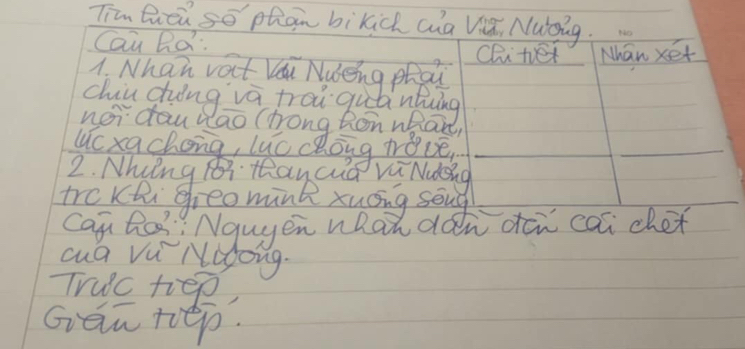 Tìm hiểu số phận bi kịch của Vũ Nương.
Câu hỏi: Chi tiết Nhận xét
1. Nhân vật Vũ Nương phải
chịu đựng và trải qua những
nỗi đau nào (trong hôn nhân,
lúc xa chồng, lúc chồng trở về,...
2. Những lời than của Vũ Nương
trc khi gieo mình xuống sông
Câu hỏi: Nguyên nhân dẫn đến cái chết
của Vũ Nương.
Trực tiếp
Gián tiếp.